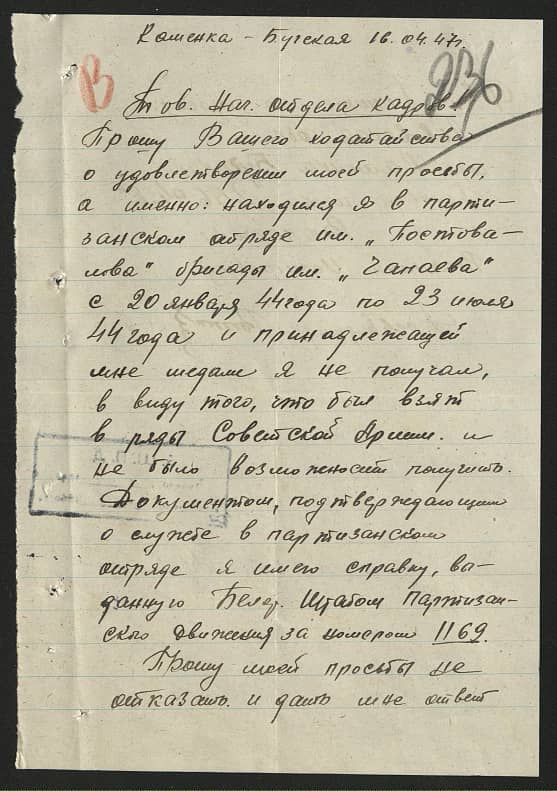 Каменка-Бугская 16.04.47г.
В
236
Тов. Нач. отдела кадров.
Прошу Вашего ходатайства
о удовлетворении моей просьбы,
а именно: находился я в парти-
занском отряде им. „Постова-
лова" бригады им. „Чапаева"
с 20 января 44 года по 23 июля
44 года и принадлежащей
мне медали я не получал,
в виду того, что был взят
в ряды Советской Армии. и
не было возможности получить.
Документом, подтверждающим
о службе в партизанском
отряде я имею справку, вы-
данную Белор. Штабом Партизан-
ского движения за номером 1169.
Прошу моей просьбы не
отказать. и дать мне ответ